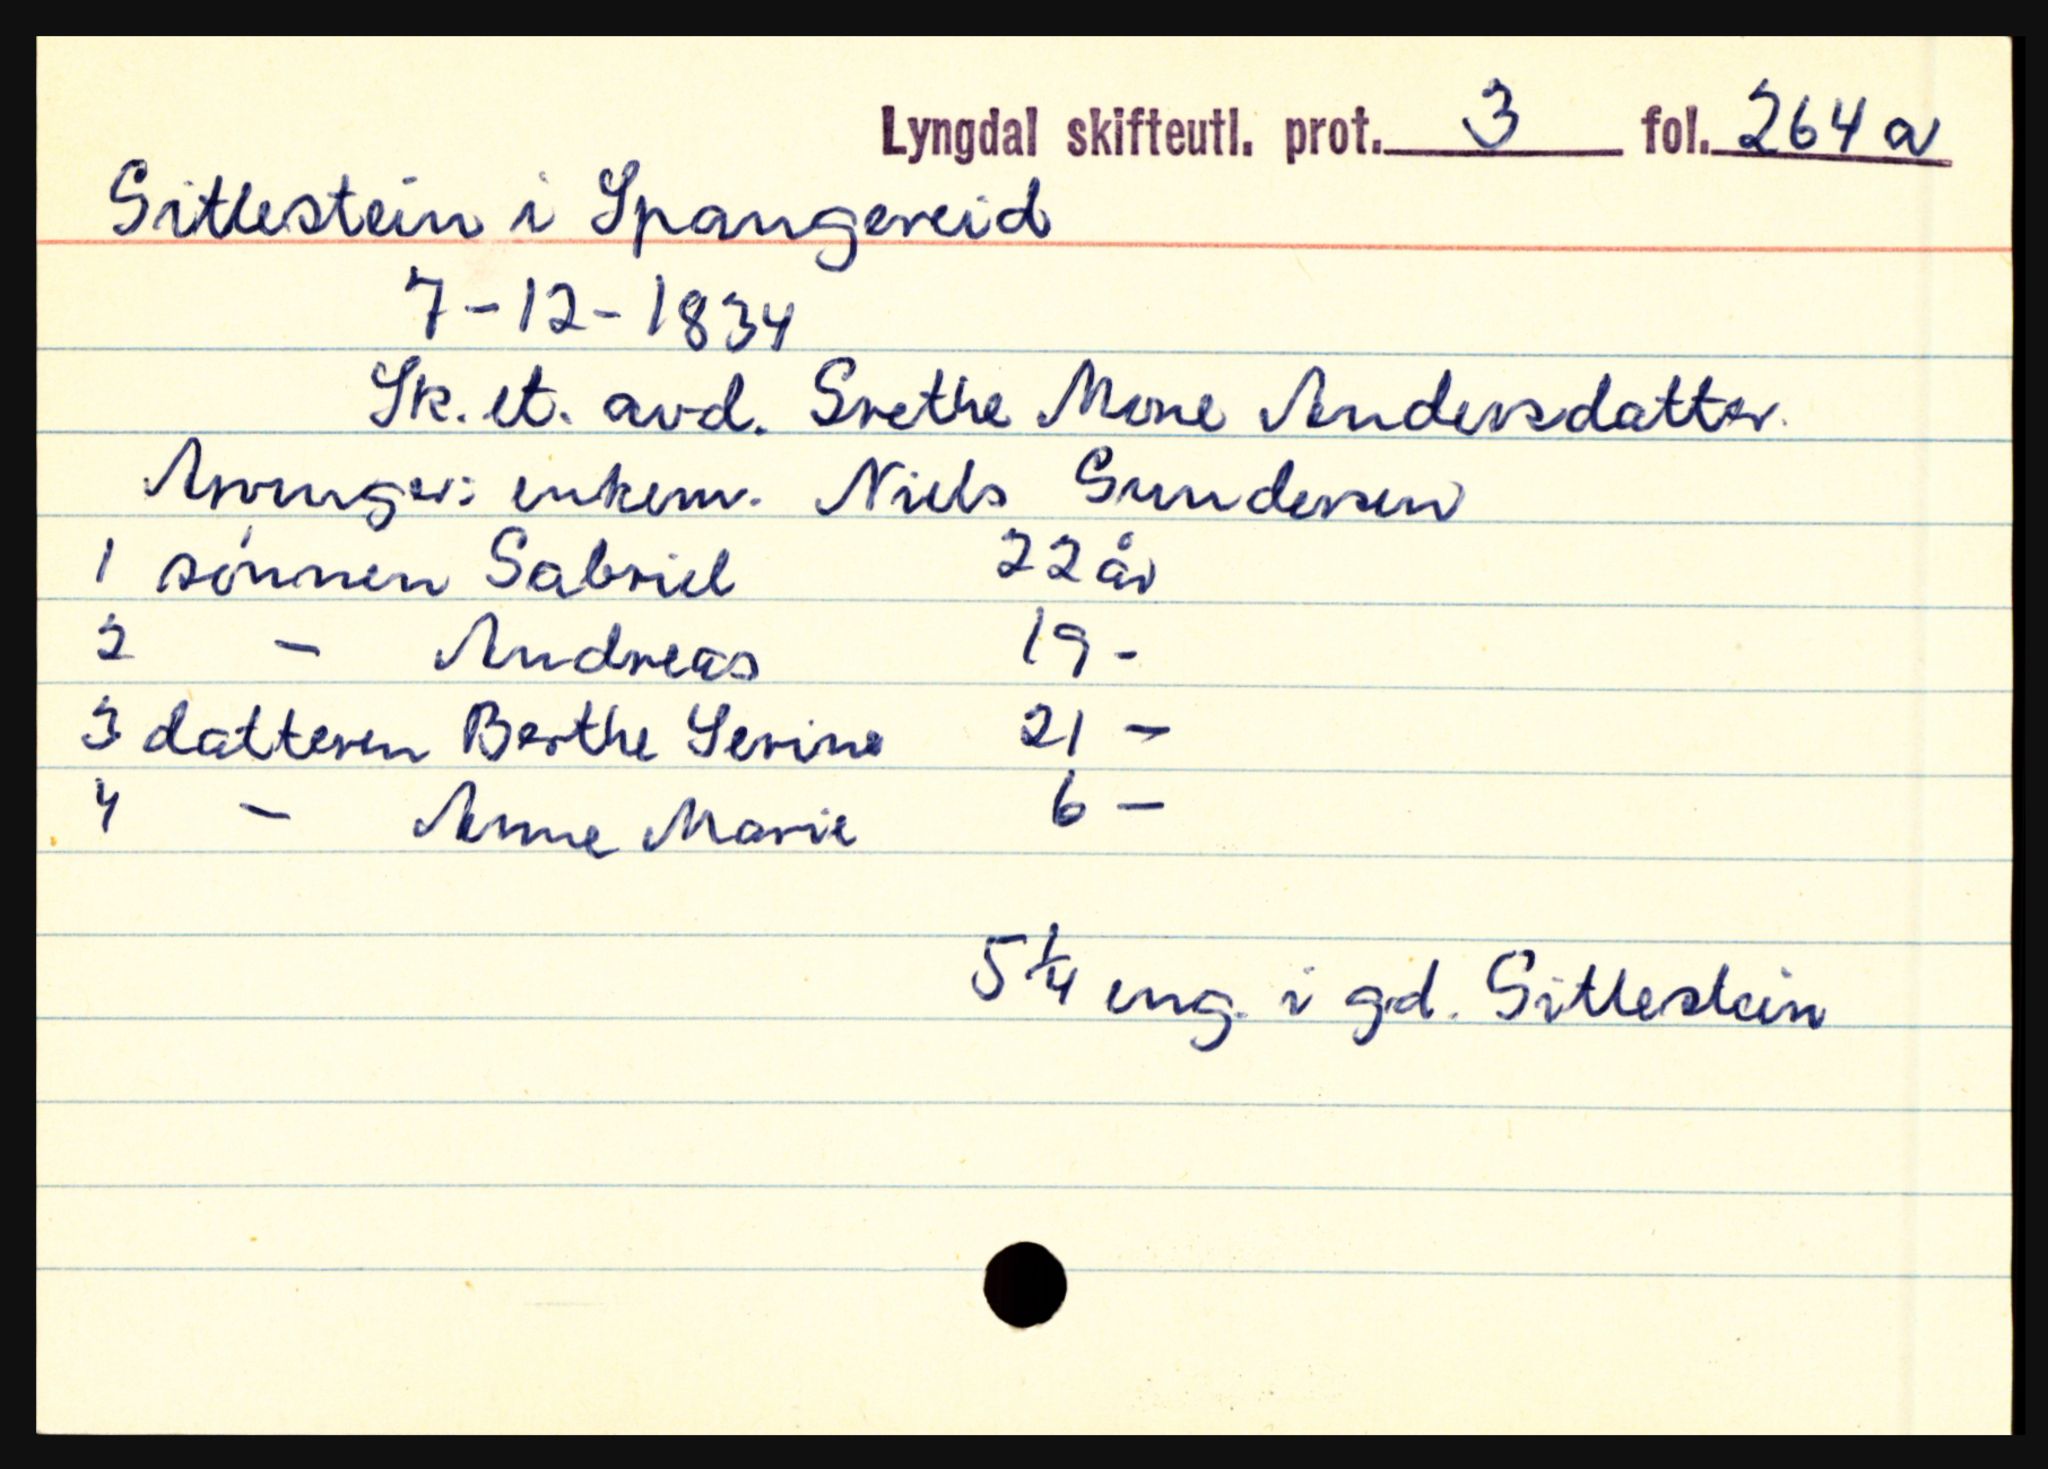 Lyngdal skifteutl. prot. 3 fol. 264 a
Gitlestein i Spangereid
7-12-1834
Sk. et. avd. Grethe Mone Andersdatter.
Arvinger: enkem. Niels Gundersen
1 sønnen Gabriel 22 år
2 - Andreas 19 -
3 datteren Berthe Serine 21 -
4 - Anne Marie 6 -
5 1/4 eng. i gd. Gitlestein